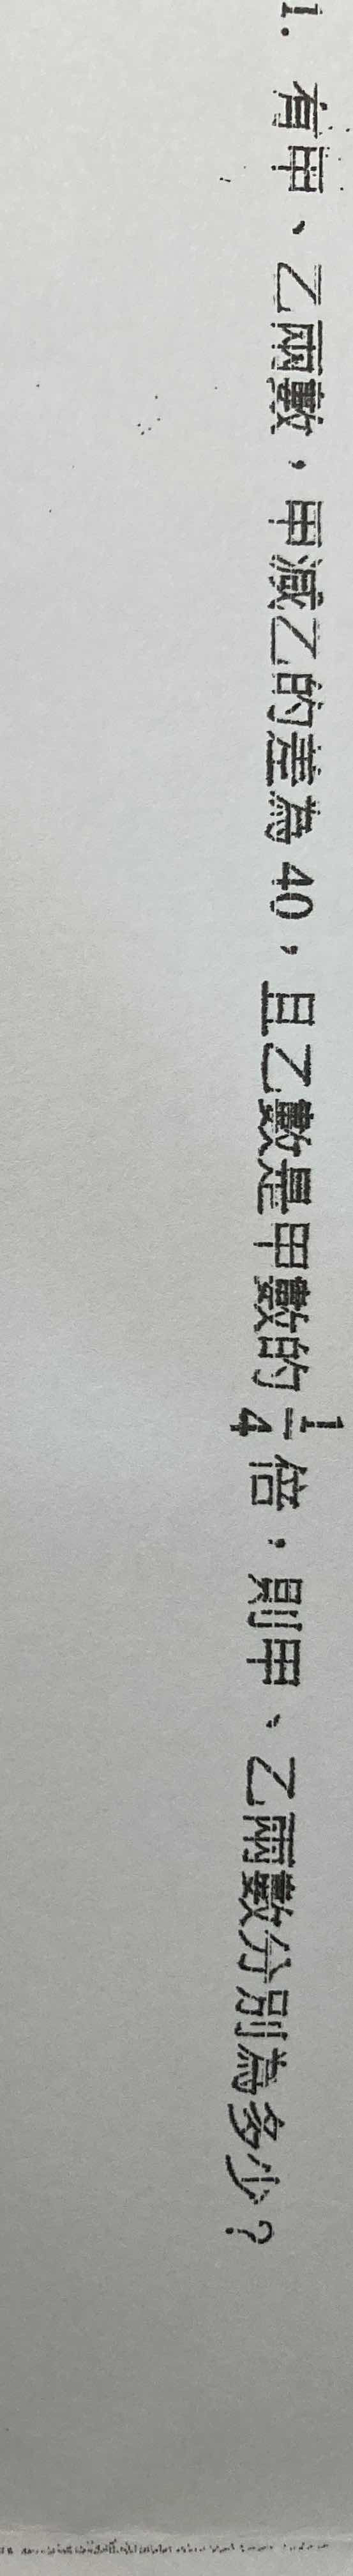 1. 有甲、乙兩數，甲減乙的差為 40，且乙數是甲數的 1/4 倍，則甲、乙兩數分別為多少？